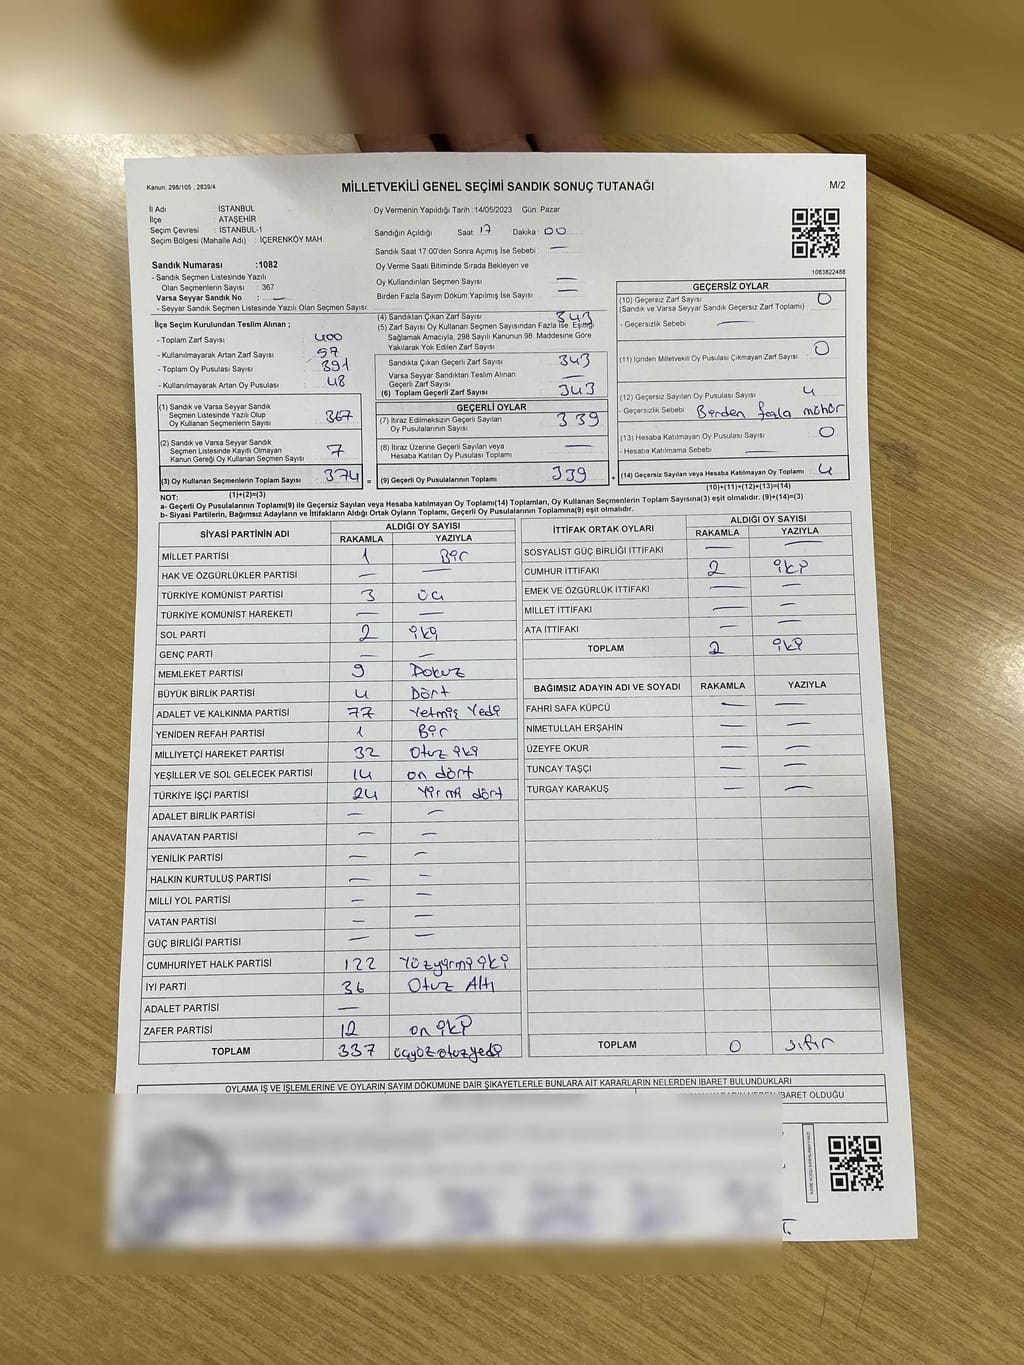 Kanun: 298/105 , 2839/4
MİLLETVEKİLİ GENEL SEÇİMİ SANDIK SONUÇ TUTANAĞI
M/2
İl Adı : İSTANBUL
İlçe : ATAŞEHİR
Seçim Çevresi : İSTANBUL-1
Seçim Bölgesi (Mahalle Adı) : İÇERENKÖY MAH.
Sandık Numarası :1082
- Sandık Seçmen Listesinde Yazılı
Olan Seçmenlerin Sayısı : 367
Varsa Seyyar Sandık No : —
- Seyyar Sandık Seçmen Listesinde Yazılı Olan Seçmen Sayısı:
Oy Vermenin Yapıldığı Tarih :14/05/2023 Gün: Pazar
Sandığın Açıldığı Saat: 17 Dakika: 00
Sandık Saat 17:00'den Sonra Açımış İse Sebebi : —
Oy Verme Saati Bitiminde Sırada Bekleyen ve
Oy Kullandırılan Seçmen Sayısı : —
Birden Fazla Sayım Döküm Yapılmış İse Sayısı : —
1083822488
İlçe Seçim Kurulundan Teslim Alınan ;
- Toplam Zarf Sayısı : 400
- Kullanılmayarak Artan Zarf Sayısı : 57
- Toplam Oy Pusulası Sayısı : 391
- Kullanılmayarak Artan Oy Pusulası : 48
(1) Sandık ve Varsa Seyyar Sandık
Seçmen Listesinde Yazılı Olup
Oy Kullanan Seçmenlerin Sayısı : 367
(2) Sandık ve Varsa Seyyar Sandık
Seçmen Listesinde Kayıtlı Olmayan
Kanun Gereği Oy Kullanan Seçmen Sayısı : 7
(3) Oy Kullanan Seçmenlerin Toplam Sayısı : 374 =
(4) Sandıktan Çıkan Zarf Sayısı : 343
(5) Zarf Sayısı Oy Kullanan Seçmen Sayısından Fazla İse, Eşitliği
Sağlamak Amacıyla, 298 Sayılı Kanunun 98. Maddesine Göre
Yakılarak Yok Edilen Zarf Sayısı :
Sandıkta Çıkan Geçerli Zarf Sayısı : 343
Varsa Seyyar Sandıktan Teslim Alınan
Geçerli Zarf Sayısı : —
(6) Toplam Geçerli Zarf Sayısı : 343
GEÇERLİ OYLAR
(7) İtiraz Edilmeksizin Geçerli Sayılan
Oy Pusulalarının Sayısı : 339
(8) İtiraz Üzerine Geçerli Sayılan veya
Hesaba Katılan Oy Pusulası Toplamı : —
(9) Geçerli Oy Pusulalarının Toplamı : 339 +
GEÇERSİZ OYLAR
(10) Geçersiz Zarf Sayısı : 0
(Sandık ve Varsa Seyyar Sandık Geçersiz Zarf Toplamı)
- Geçersizlik Sebebi : —
(11) İçinden Milletvekili Oy Pusulası Çıkmayan Zarf Sayısı : 0
(12) Geçersiz Sayılan Oy Pusulası Sayısı : 4
- Geçersizlik Sebebi : Berden fazla mühür
(13) Hesaba Katılmayan Oy Pusulası Sayısı : 0
- Hesaba Katılmama Sebebi : —
(14) Geçersiz Sayılan veya Hesaba Katılmayan Oy Toplamı : 4
NOT: (1)+(2)=(3)
(10)+(11)+(12)+(13)=(14)
a- Geçerli Oy Pusulalarının Toplamı(9) ile Geçersiz Sayılan veya Hesaba katılmayan Oy Toplamı(14) Toplamları, Oy Kullanan Seçmenlerin Toplam Sayısına(3) eşit olmalıdır. (9)+(14)=(3)
b- Siyasi Partilerin, Bağımsız Adayların ve İttifakların Aldığı Ortak Oyların Toplamı, Geçerli Oy Pusulalarının Toplamına(9) eşit olmalıdır.
SİYASİ PARTİNİN ADI ALDIĞI OY SAYISI
RAKAMLA YAZIYLA
MİLLET PARTİSİ 1 Bir
HAK VE ÖZGÜRLÜKLER PARTİSİ — —
TÜRKİYE KOMÜNİST PARTİSİ 3 üç
TÜRKİYE KOMÜNİST HAREKETİ — —
SOL PARTİ 2 iki
GENÇ PARTİ — —
MEMLEKET PARTİSİ 9 Dokuz
BÜYÜK BİRLİK PARTİSİ 4 Dört
ADALET VE KALKINMA PARTİSİ 77 Yetmiş Yedi
YENİDEN REFAH PARTİSİ 1 Bir
MİLLİYETÇİ HAREKET PARTİSİ 32 Otuz iki
YEŞİLLER VE SOL GELECEK PARTİSİ 14 on dört
TÜRKİYE İŞÇİ PARTİSİ 24 Yirmi dört
ADALET BİRLİK PARTİSİ — —
ANAVATAN PARTİSİ — —
YENİLİK PARTİSİ — —
HALKIN KURTULUŞ PARTİSİ — —
MİLLİ YOL PARTİSİ — —
VATAN PARTİSİ — —
GÜÇ BİRLİĞİ PARTİSİ — —
CUMHURİYET HALK PARTİSİ 122 Yüzyirmi iki
İYİ PARTİ 36 Otuz Altı
ADALET PARTİSİ —
ZAFER PARTİSİ 12 on iki
TOPLAM 337 üçyüzotuzyedi
İTTİFAK ORTAK OYLARI ALDIĞI OY SAYISI
RAKAMLA YAZIYLA
SOSYALİST GÜÇ BİRLİĞİ İTTİFAKI — —
CUMHUR İTTİFAKI 2 iki
EMEK VE ÖZGÜRLÜK İTTİFAKI — —
MİLLET İTTİFAKI — —
ATA İTTİFAKI — —
TOPLAM 2 iki
BAĞIMSIZ ADAYIN ADI VE SOYADI RAKAMLA YAZIYLA
FAHRİ SAFA KÜPCÜ — —
NİMETULLAH ERŞAHİN — —
ÜZEYFE OKUR — —
TUNCAY TAŞÇI — —
TURGAY KARAKUŞ — —
TOPLAM 0 sıfır
OYLAMA İŞ VE İŞLEMLERİNE VE OYLARIN SAYIM DÖKÜMÜNE DAİR ŞİKAYETLERLE BUNLARA AİT KARARLARIN NELERDEN İBARET BULUNDUKLARI
İBARET OLDUĞU